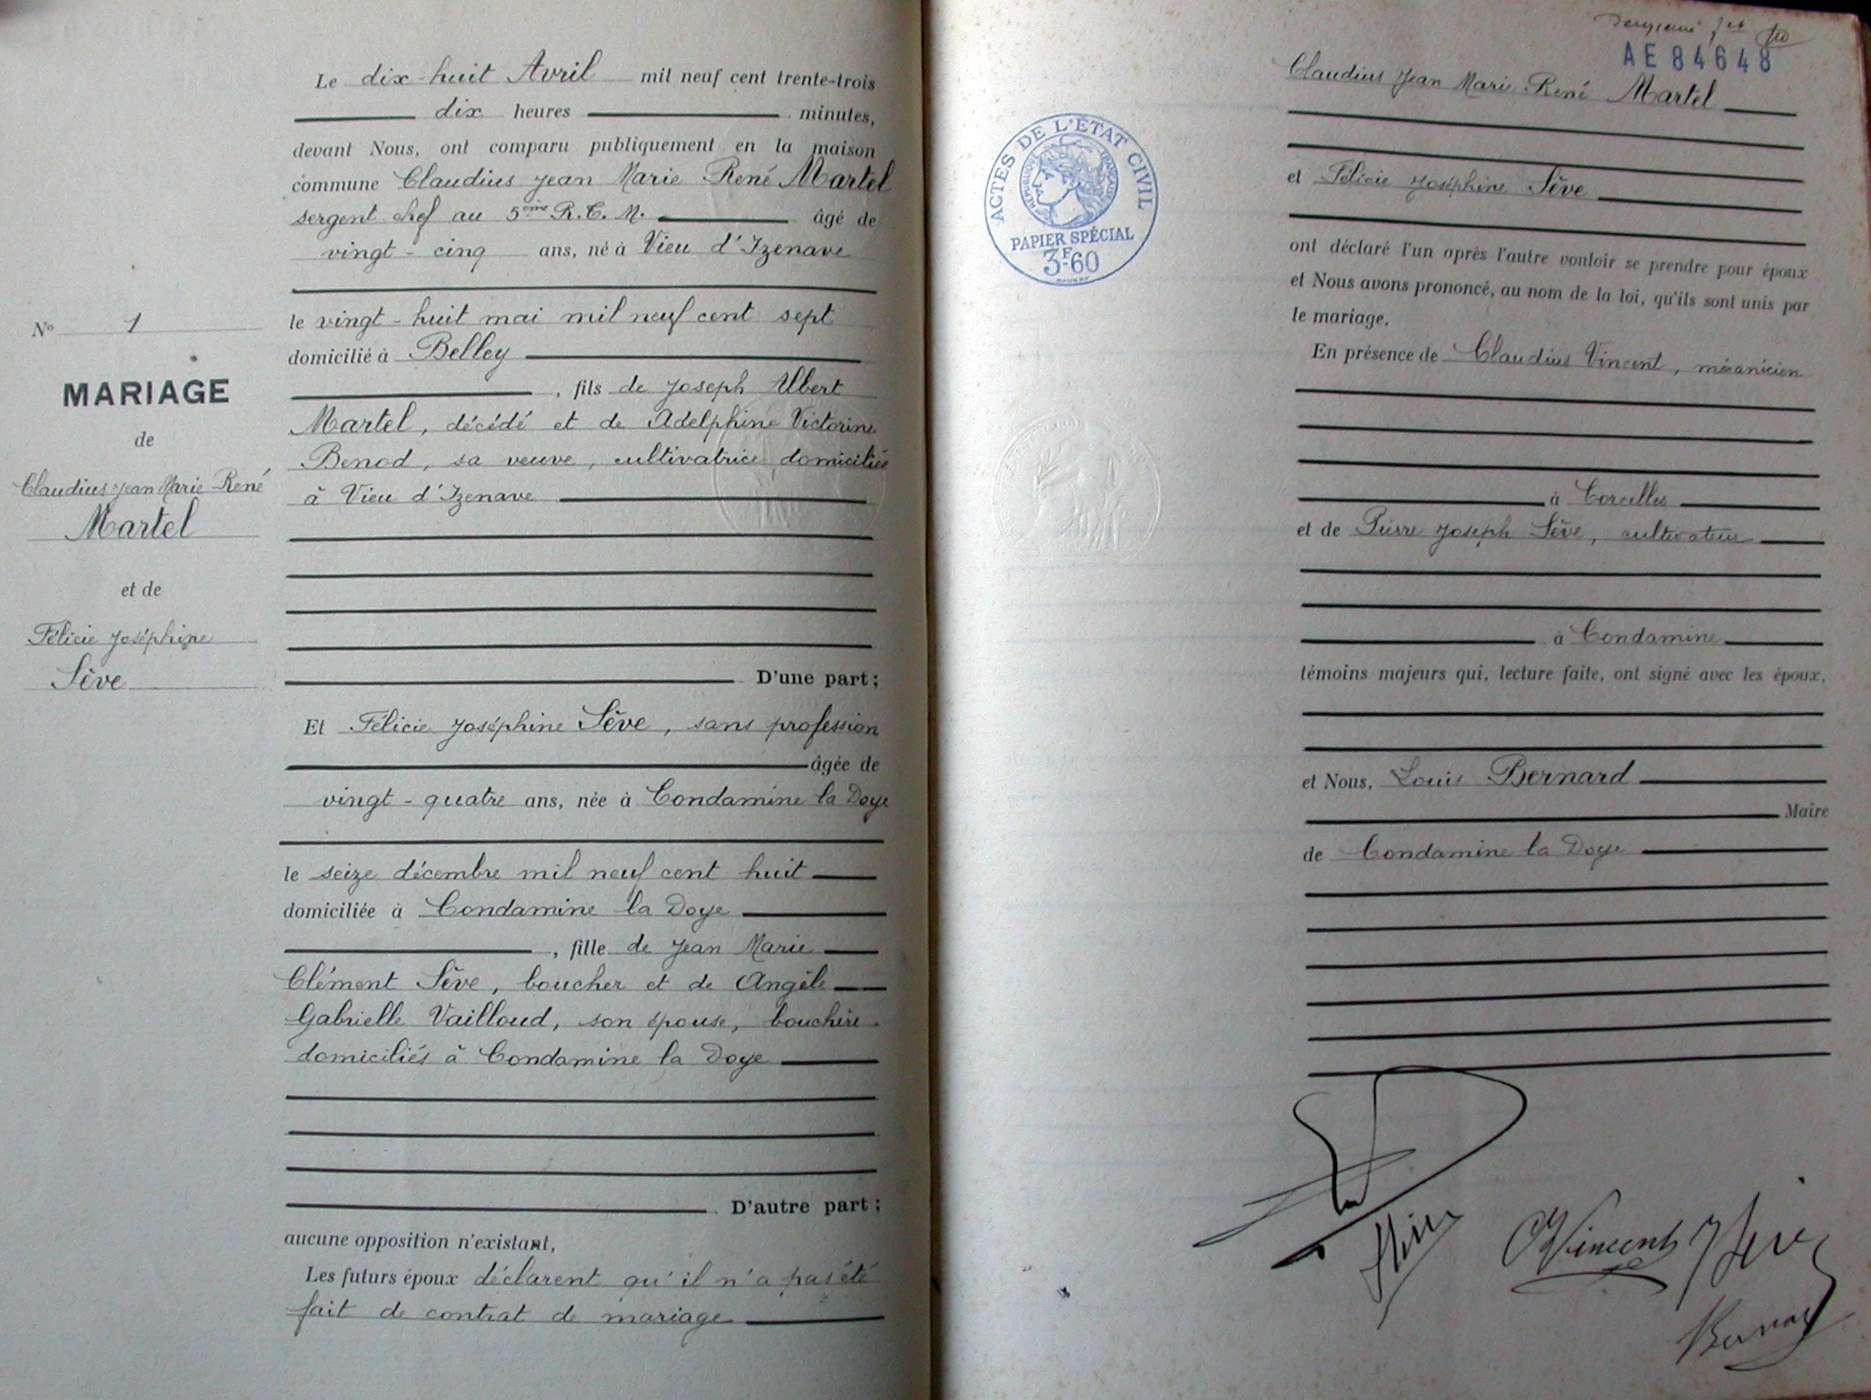 N° 1
MARIAGE
de
Claudius Jean Marie René
Martel
et de
Félicie Joséphine
Sève
Le dix-huit Avril mil neuf cent trente-trois
dix heures minutes,
devant Nous, ont comparu publiquement en la maison
commune Claudius Jean Marie René Martel
sergent chef au 5ème R.C.M. âgé de
vingt-cinq ans, né à Vieu d'Izenave
le vingt-huit mai mil neuf cent sept
domicilié à Belley
, fils de Joseph Albert
Martel, décédé et de Adelphine Victorine
Benod, sa veuve, cultivatrice domiciliée
à Vieu d'Izenave
D'une part;
Et Félicie Joséphine Sève, sans profession
âgée de
vingt-quatre ans, née à Condamine la Doye
le seize décembre mil neuf cent huit
domiciliée à Condamine la Doye
, fille de Jean Marie
Clément Sève, boucher et de Angèle
Gabrielle Vailloud, son épouse, bouchère
domiciliés à Condamine la Doye
D'autre part;
aucune opposition n'existant,
Les futurs époux déclarent qu'il n'a pas été
fait de contrat de mariage
AE84648
ACTES DE L'ETAT CIVIL
RÉPUBLIQUE FRANÇAISE
PAPIER SPÉCIAL
3F.60
Claudius Jean Marie René Martel
et Félicie Joséphine Sève
ont déclaré l'un après l'autre vouloir se prendre pour époux
et Nous avons prononcé, au nom de la loi, qu'ils sont unis par
le mariage.
En présence de Claudius Vincent, mécanicien
à Corcelles
et de Pierre Joseph Sève, cultivateur
à Condamine
témoins majeurs qui, lecture faite, ont signé avec les époux,
et Nous, Louis Bernard
Maire
de Condamine la Doye
Sève
Vincent
Sève
Bernard